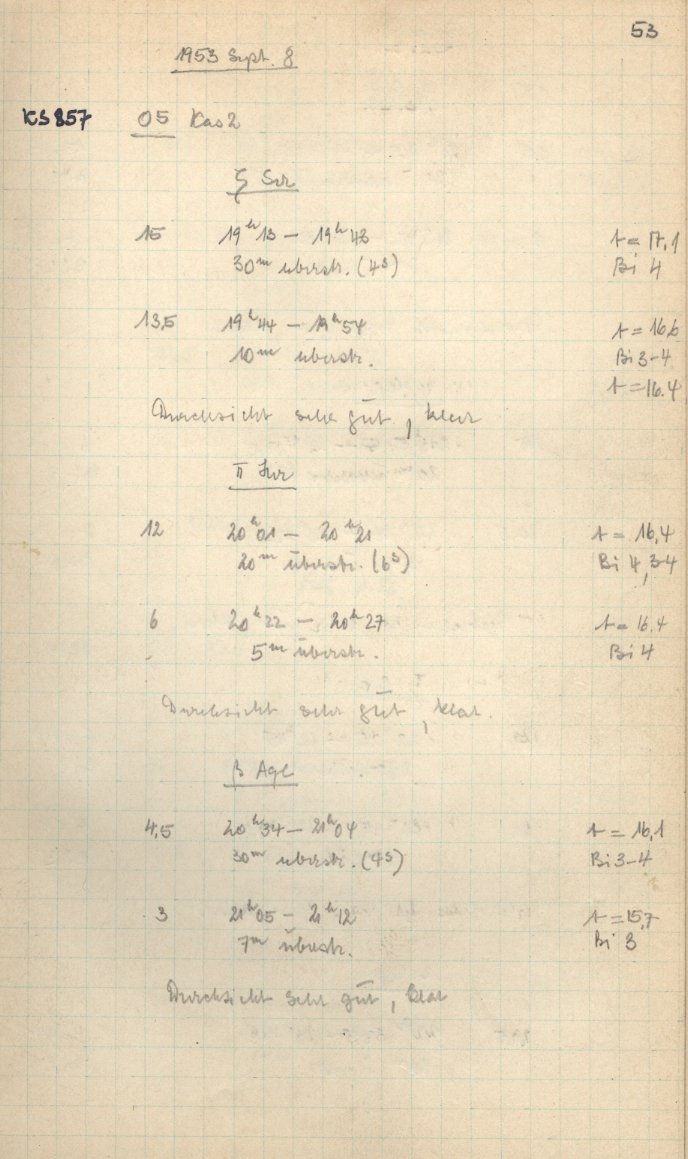 53
1953 Sept. 8
KS 857 05 Kas 2
ξ Ser
15 19ʰ13 – 19ʰ43 t = 17,1
30ᵐ überstr. (4ˢ) Bi 4
13,5 19ʰ44 – 19ʰ54 t = 16,6
10ᵐ überstr. Bi 3-4
t = 16.4
Durchsicht sehr gut, klar
π Her
12 20ʰ01 – 20ʰ21 t = 16,4
20ᵐ überstr. (6ˢ) Bi 4, 3-4
6 20ʰ22 – 20ʰ27 t = 16.4
5ᵐ überstr. Bi 4
Durchsicht sehr gut, klar.
β Aql
4,5 20ʰ34 – 21ʰ04 t = 16,1
30ᵐ überstr. (4ˢ) Bi 3-4
3 21ʰ05 – 21ʰ12 t = 15,7
7ᵐ überstr. Bi 3
Durchsicht sehr gut, klar